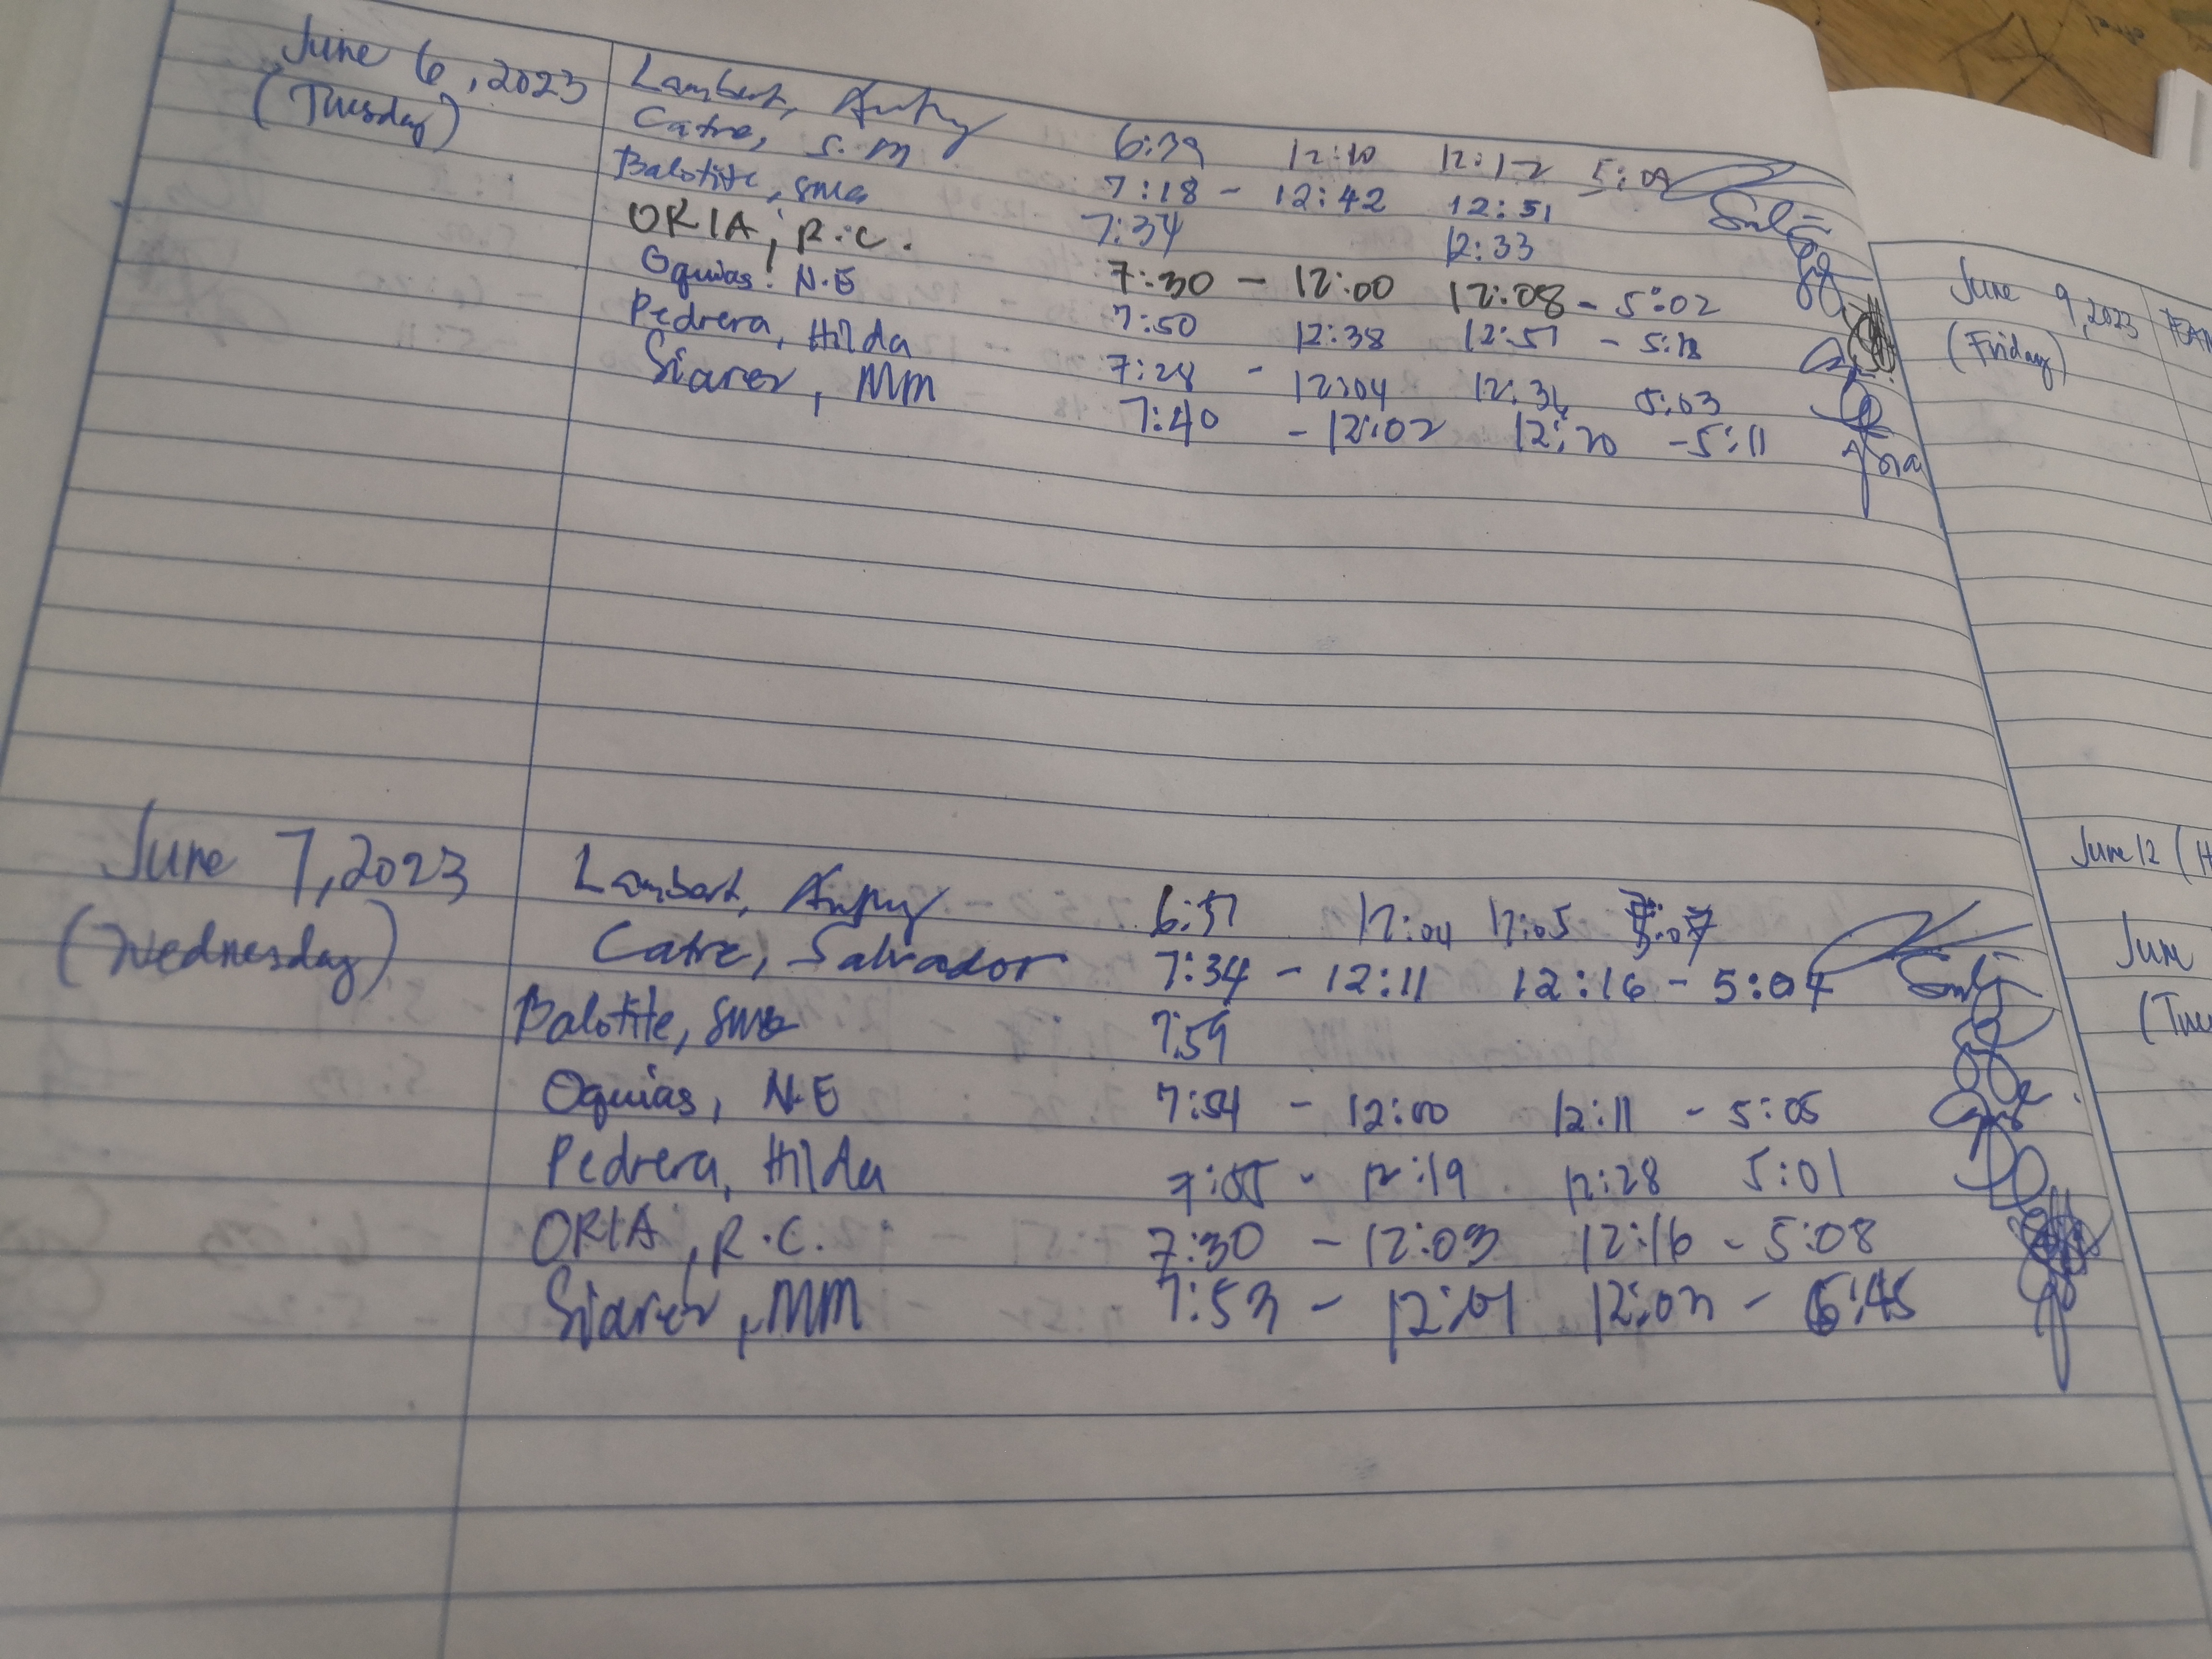 June 6, 2023
(Tuesday)
Lambert, 6:39 12:10 12:12 5:09
Catre, S. M 7:18 - 12:42 12:51
Balotite, SMB 7:34 12:33
ORIA, R.C. 7:30 - 12:00 12:08 - 5:02
Oquias, N.E 7:50 12:38 12:51 - 5:18
Pedrera, Hilda 7:28 - 12:04 12:36 5:03
Siarez, MM 7:40 - 12:02 12:20 - 5:11
June 7, 2023
(Wednesday)
Lambert, 6:51 12:04 12:05
Catre, Salvador 7:34 - 12:11 12:16 - 5:04
Balotite, SMB 7:59
Oquias, N.E 7:54 - 12:00 12:11 - 5:05
Pedrera, Hilda 7:55 - 12:19 12:28 5:01
ORIA, R.C. 7:30 - 12:03 12:16 - 5:08
Siarez, MM 7:53 - 12:01 12:03 -
June 9, 2023
(Friday)
June 12 (H
June
(Tue